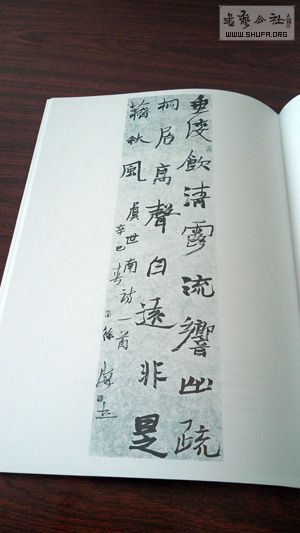 書藝公社
WWW.SHUFA.ORG
垂緌飲清露流響出疏
桐居高聲自遠非是
藉秋風
虞世南詩一首
辛巳春